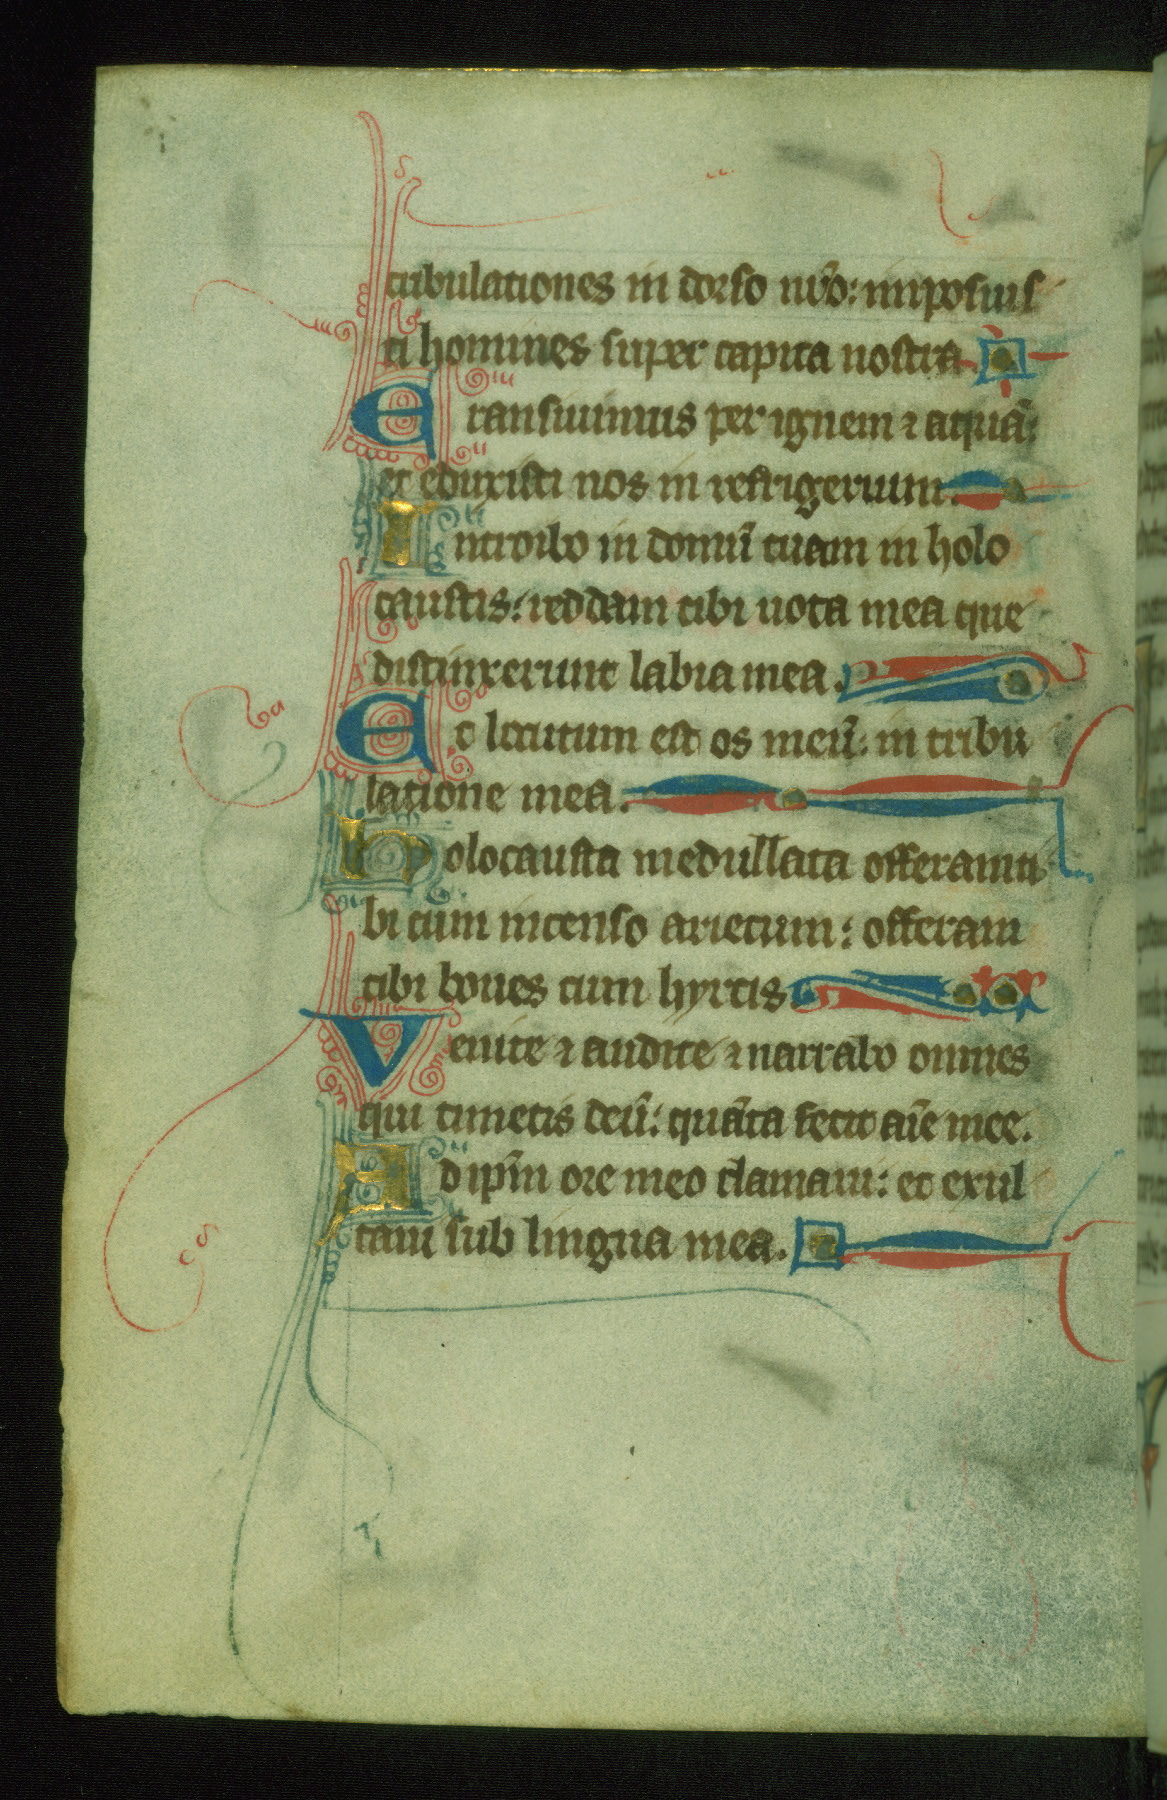 tribulationes in dorso nr̄o: imposuis
ti homines super capita nostra.
Transiuimus per ignem ⁊ aquā:
et eduxisti nos in refrigerium.
Introibo in domū tuam in holo
caustis: reddam tibi uota mea que
distinxerunt labia mea.
Et locutum est os meū: in tribu
latione mea.
Holocausta medullata offeram ti
bi cum incenso arietum: offeram
tibi boues cum hyrcis
Venite ⁊ audite ⁊ narrabo omnes
qui timetis deū: quāta fecit aīe mee.
Ad ip̄m ore meo clamaui: et exul
taui sub lingua mea.